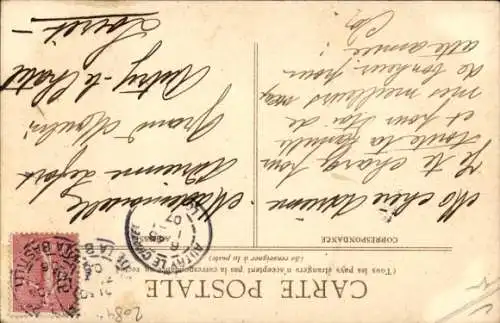 CARTE POSTALE
(Tous les pays étrangers n'acceptent pas la correspondance au recto
(Se renseigner à la poste)
CORRESPONDANCE
Ma chère Adrienne
Je te charge pour
toute la famille
et pour toi de
mes meilleurs vœux
de bonheur pour
cette année
Mademoiselle
Adrienne
Grand Moulin
Autry-le-Châtel
Loiret
AUTRY LE CHATEL
07
LA BASTILLE
2084